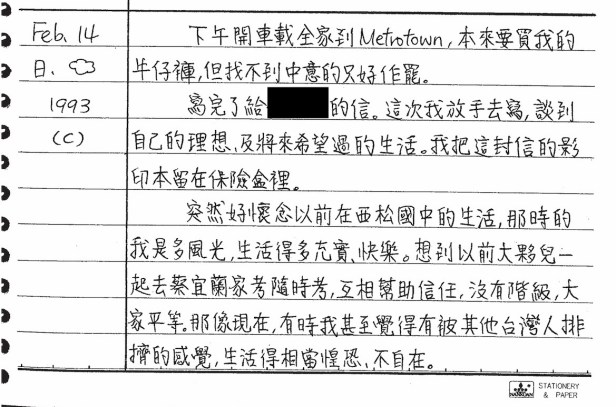 Feb. 14
日.
1993
(C)
下午開車載全家到 Metrotown, 本來要買我的
牛仔褲, 但找不到中意的只好作罷。
寫完了給 的信。這次我放手去寫, 談到
自己的理想、及將來希望過的生活。我把這封信的影
印本留在保險盒裡。
突然好懷念以前在西松國中的生活, 那時的
我是多風光, 生活得多充實、快樂。想到以前大夥兒一
起去蔡宜蘭家考隨時考, 互相幫助信任, 沒有階級, 大
家平等, 那像現在, 有時我甚至覺得有被其他台灣人排
擠的感覺, 生活得相當惶恐、不自在。
NANKUAN STATIONERY
& PAPER